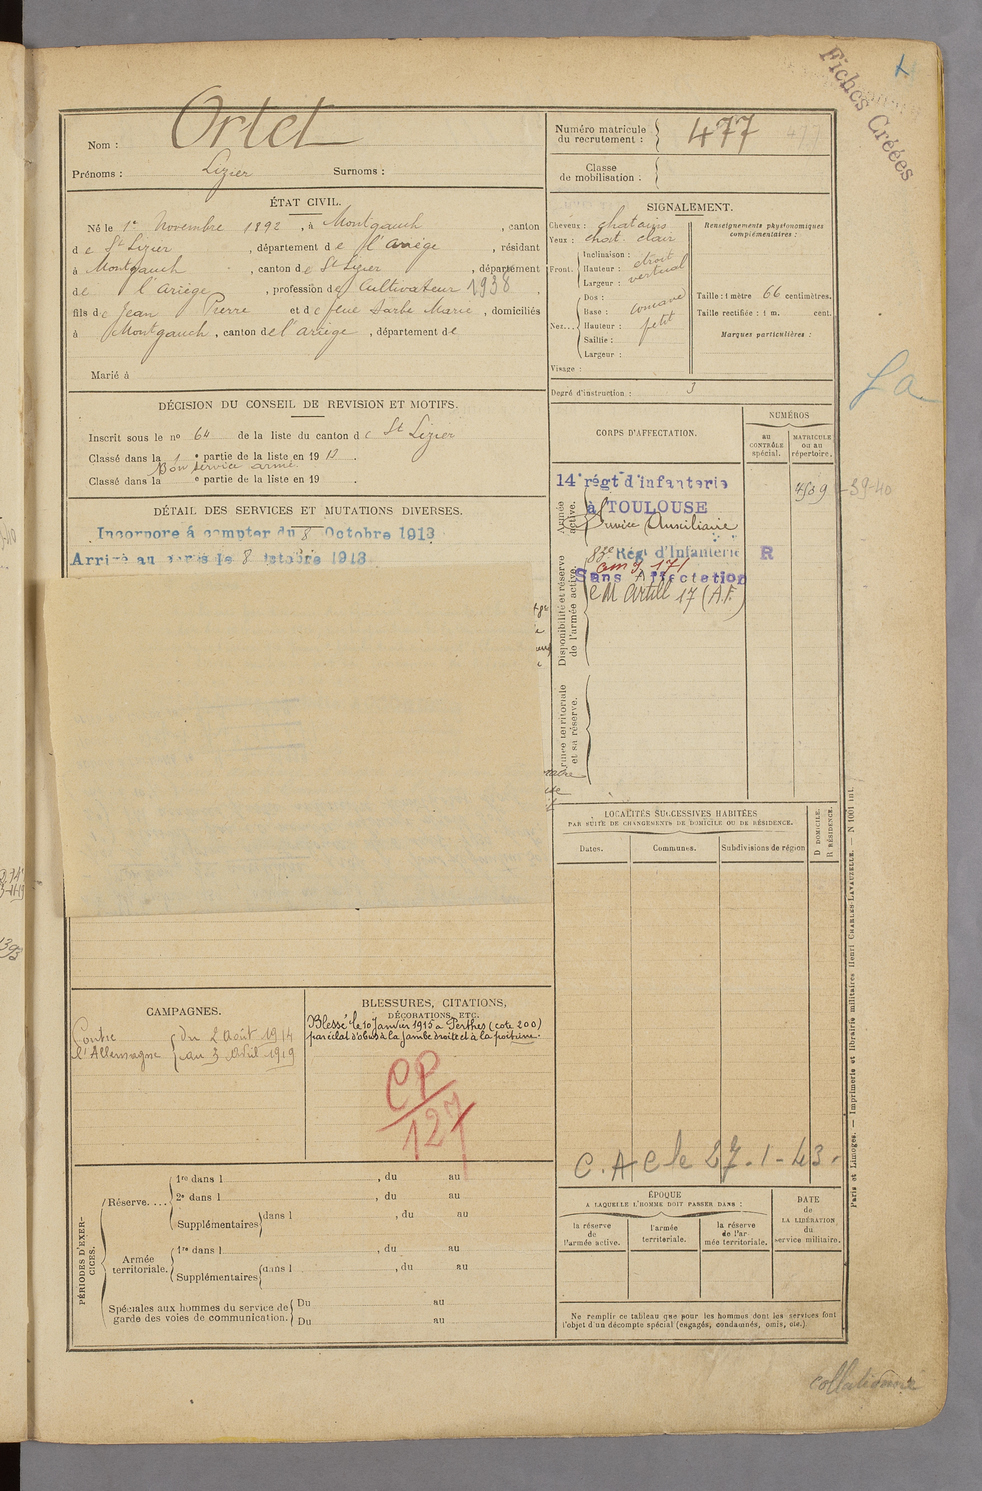 Fiches Créées
Nom : Ortet
Prénoms : Lizier Surnoms :
Numéro matricule du recrutement : 477
Classe de mobilisation :
ÉTAT CIVIL.
Né le 1er Novembre 1892, à Montgauch, canton
de St Lizier, département de l'ariège, résidant
à Montgauch, canton de St Lizier, département
de l'Ariège, profession de Cultivateur 1938
fils de Jean Pierre et de feue Darbe Marie, domiciliés
à Montgauch, canton de l'ariège, département de
Marié à
SIGNALEMENT.
Cheveux : chatains
Yeux : chat. clair
Front. Inclinaison : étroit
Hauteur : vertical
Largeur :
Nez... Dos :
Base : concave
Hauteur : petit
Saillie :
Largeur :
Visage :
Renseignements physionomiques complémentaires :
Taille : 1 mètre 66 centimètres.
Taille rectifiée : 1 m. cent.
Marques particulières :
Degré d'instruction : 3
DÉCISION DU CONSEIL DE REVISION ET MOTIFS.
Inscrit sous le no 64 de la liste du canton de St Lizier
Classé dans la 1e partie de la liste en 1913.
Bon service armé
Classé dans la e partie de la liste en 19 .
DÉTAIL DES SERVICES ET MUTATIONS DIVERSES.
Incorporé à compter du 8 Octobre 1913
Arrivé au corps le 8 Octobre 1913.
CORPS D'AFFECTATION.
NUMÉROS
au CONTRÔLE spécial.
MATRICULE ou au répertoire.
Armée active.
14e régt d'infanterie
à TOULOUSE
Service Auxiliaire
4539
39-40
Disponibilité et réserve de l'armée active.
83e Régt d'Infanterie R
Sans Affectation
CM Artill 17 (A.F.)
Armée territoriale et sa réserve.
LOCALITÉS SUCCESSIVES HABITÉES
PAR SUITE DE CHANGEMENTS DE DOMICILE OU DE RÉSIDENCE.
Dates. Communes. Subdivisions de région
D DOMICILE.
R RÉSIDENCE.
C.A C le 27.1-43.
CAMPAGNES.
Contre l'Allemagne
du 2 Août 1914
au 3 Avril 1919
BLESSURES, CITATIONS,
DÉCORATIONS, ETC.
Blessé le 10 Janvier 1915 à Perthes (cote 200)
par éclat d'obus à la jambe droite et à la poitrine.
CP
127
PÉRIODES D'EXERCICES.
Réserve.... 1re dans l , du au
2e dans l , du au
Supplémentaires dans l , du au
Armée territoriale. 1re dans l , du au
Supplémentaires dans l , du au
Spéciales aux hommes du service de garde des voies de communication. Du au
Du au
ÉPOQUE
A LAQUELLE L'HOMME DOIT PASSER DANS :
la réserve de l'armée active.
l'armée territoriale.
la réserve de l'armée territoriale.
DATE de LA LIBÉRATION du service militaire.
Ne remplir ce tableau que pour les hommes dont les services font
l'objet d'un décompte spécial (engagés, condamnés, omis, etc.)
Paris et Limoges. — Imprimerie et librairie militaires Henri CHARLES-LAVAUZELLE. — N 1001 int.
collationné